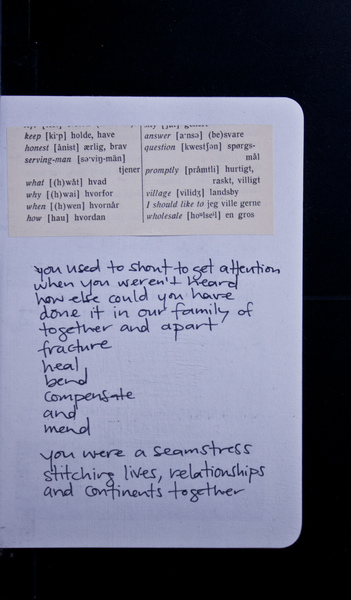 keep [ki·p] holde, have
honest [ånist] ærlig, brav
serving-man [sə·viŋ-män]
tjener
what [(h)wåt] hvad
why [(h)wai] hvorfor
when [(h)wen] hvornår
how [hau] hvordan
answer [a·nsə] (be)svare
question [kwestʃən] spørgs-
mål
promptly [pråmtli] hurtigt,
raskt, villigt
village [vilidʒ] landsby
I should like to jeg ville gerne
wholesale [hoᵘlseⁱl] en gros
you used to shout to get attention
when you weren't heard
how else could you have
done it in our family of
together and apart
fracture
heal
bend
compensate
and
mend
you were a seamstress
stitching lives, relationships
and continents together